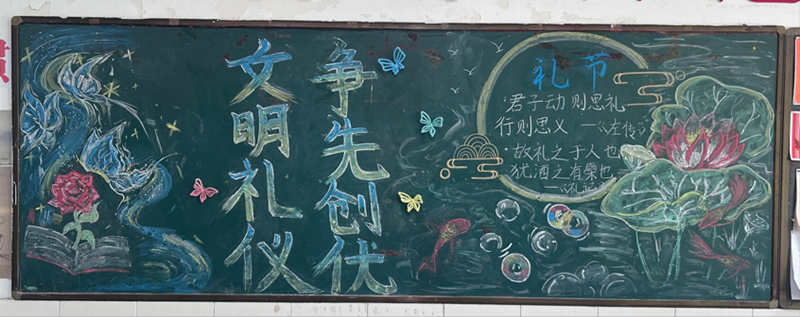 文明礼仪
争先创优
礼节
·君子动则思礼
行则思义 ——《左传》
·故礼之于人也
犹酒之有蘖也
——《礼运》